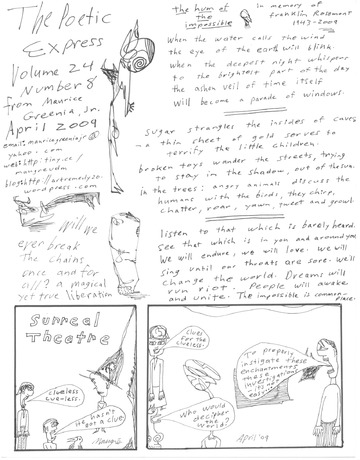 The Poetic
Express
Volume 24
Number 8
from Maurice
Greenia, Jr.
April 2009
email: mauricegreeniajr@
yahoo.com
web: http://tiny.cc/
maugreudm
blog: http://artremedy20.
wordpress.com
Will we
ever break
The chains
once and for
all? a magical
yet true liberation
the hum of
the
impossible
in memory of
Franklin Rosemont
1943-2009
When the water calls the wind
the eye of the earth will blink.
when the deepest night whispers
to the brightest part of the day
the ashen veil of time itself
Will become a parade of windows.
Sugar strangles the insides of caves
- a thin sheet of gold serves to
terrify the little children.
broken toys wander the streets, trying
to stay in the shadow, out of the sun.
in the trees: angry animals discuss the
humans with the birds, they chirp,
chatter, roar, yawn, tweet and growl.
listen to that which is barely heard.
see that which is in you and around you.
We will endure, we will love. we will
sing until our throats are sore. we'll
change the world. Dreams will
run riot. People will awake
and unite. The impossible is common-
place.
Surreal
Theatre
clueless
clue-less.
He hasn't
got a clue
Maurice
clues
for the
clueless.
Who would
decipher the
world?
April '09
To properly
instigate these
enchantments
one must
investigate
its
easy